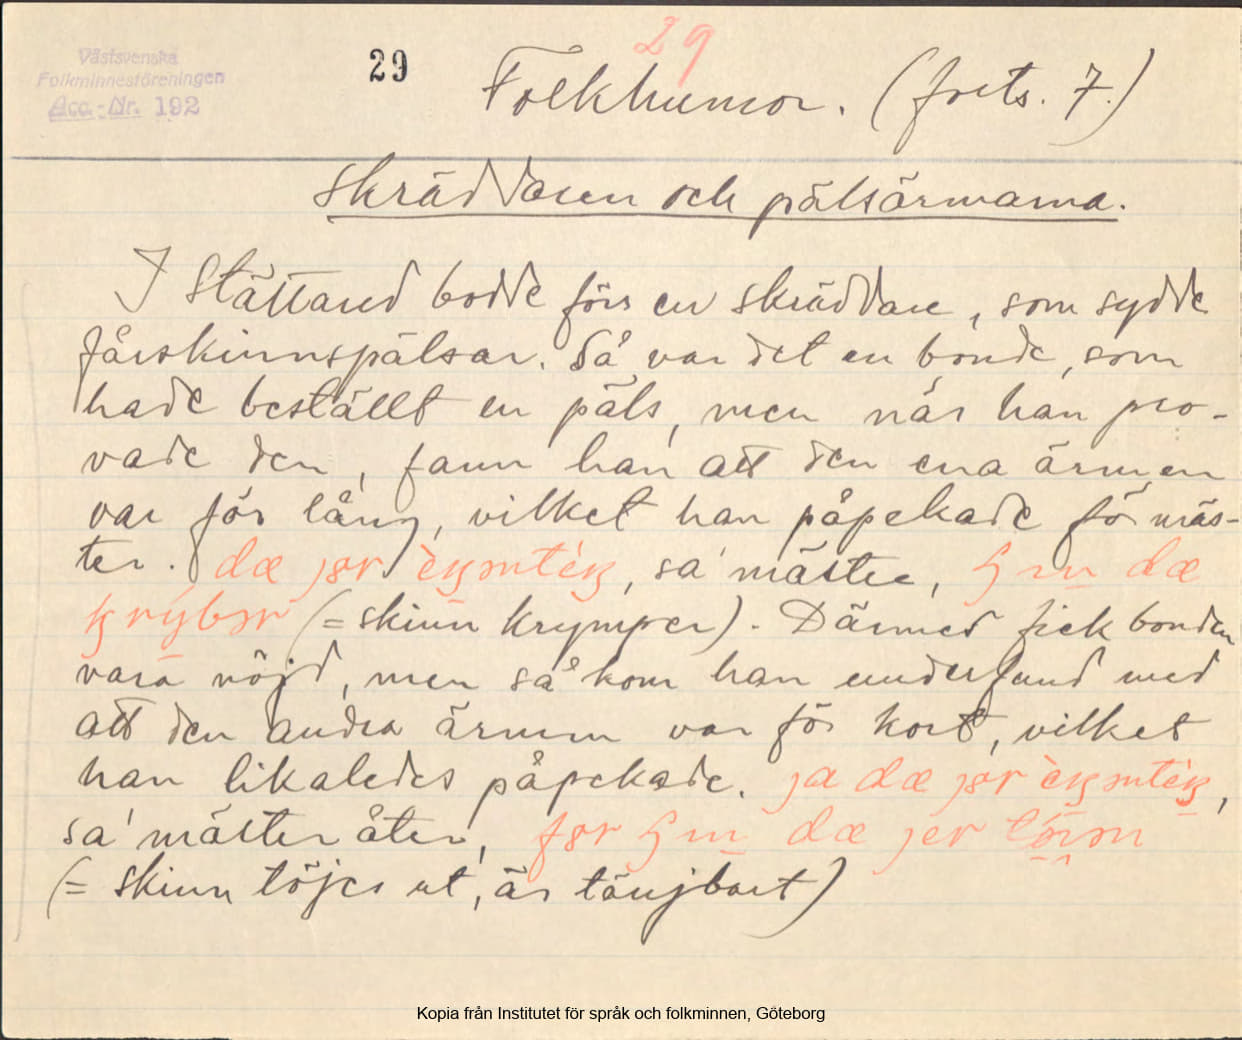 29
Västsvenska
Folkminnesföreningen
Acc.-Nr. 192
29
Folkhumor. (forts. 7.)
Skräddaren och pälsärmarna.
I Stättared bodde förr en skräddare, som sydde
fårskinnspälsar. Så var det en bonde, som
hade beställt en päls, men när han pro-
vade den, fann han att den ena ärmen
var för lång, vilket han påpekade för mäs-
ter. dæ jør, sa' mäster, dæ
(= skinn krymper). Därmed fick bonden
vara nöjd, men så kom han underfund med
att den andra ärmen var för kort, vilket
han likaledes påpekade. ja dæ jør,
sa' mäster åter, før dæ jer
(= skinn töjer ut, är tänjbart)
Kopia från Institutet för språk och folkminnen, Göteborg